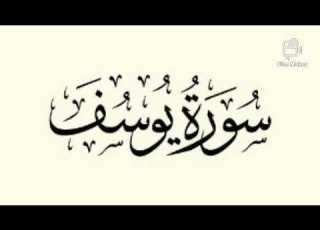 سُورَةُ يُوسُفَ